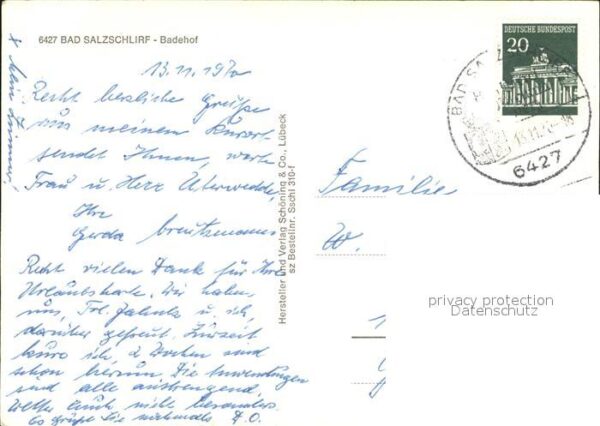 6427 BAD SALZSCHLIRF - Badehof
x Mein
13.11.1970
Recht herzliche Grüße
aus meinem Kurort
sendet Ihnen, werte
Frau u. Herr Uterwedde,
Ihre
Gerda
Recht vielen Dank für Ihre
Urlaubskarte. Wir haben
uns, Frl. u. ich,
darüber gefreut. Zurzeit
kure ich, 2 Wochen sind
schon herum. Die Anwendungen
sind alle anstrengend,
Wetter auch nicht besonders.
Es grüßt Sie nochmals D.O.
Hersteller und Verlag Schöning & Co., Lübeck
sz Bestellnr. Sschl 310-f
DEUTSCHE BUNDESPOST
20
BAD SALZ
6427
Familie
W.
privacy protection
Datenschutz